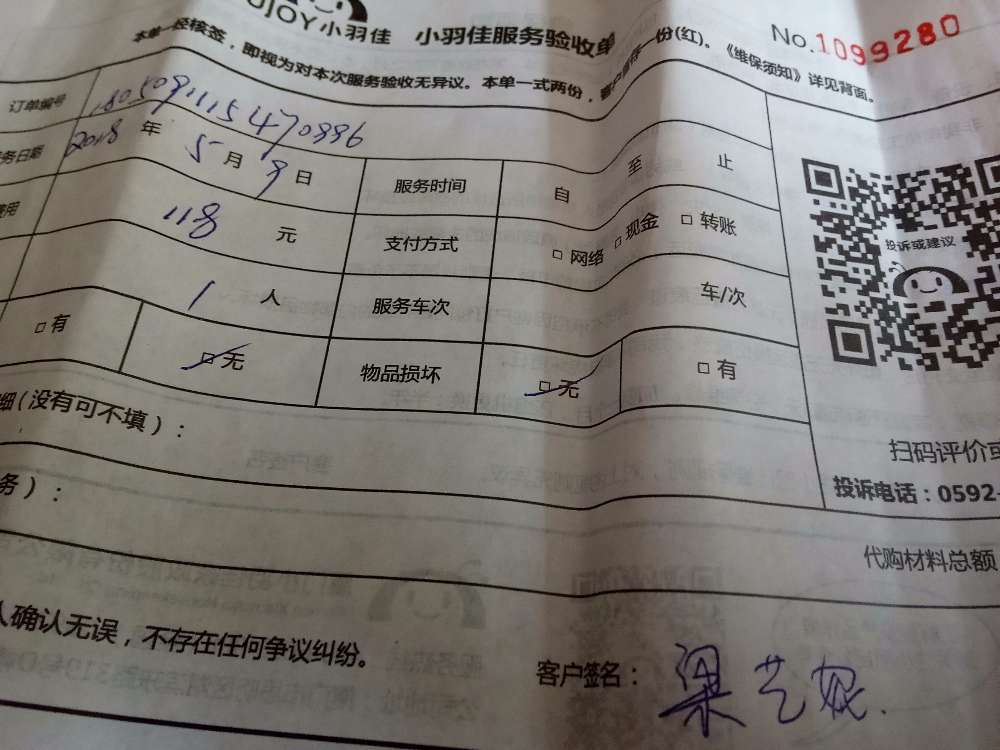 UJOY小羽佳 小羽佳服务验收单
No.1099280
本单一经核签,即视为对本次服务验收无异议。本单一式两份,客户留存一份(红)。《维保须知》详见背面。
订单编号 1805091115470896
务日期 2018年5月9日 服务时间 自 至 止
费用 118元 支付方式 □网络 □现金 □转账
1人 服务车次 车/次
□有 □无 物品损坏 □无 □有
投诉或建议
细(没有可不填):
扫码评价或
务):
投诉电话:0592-
代购材料总额
人确认无误,不存在任何争议纠纷。
客户签名:梁艺娓.